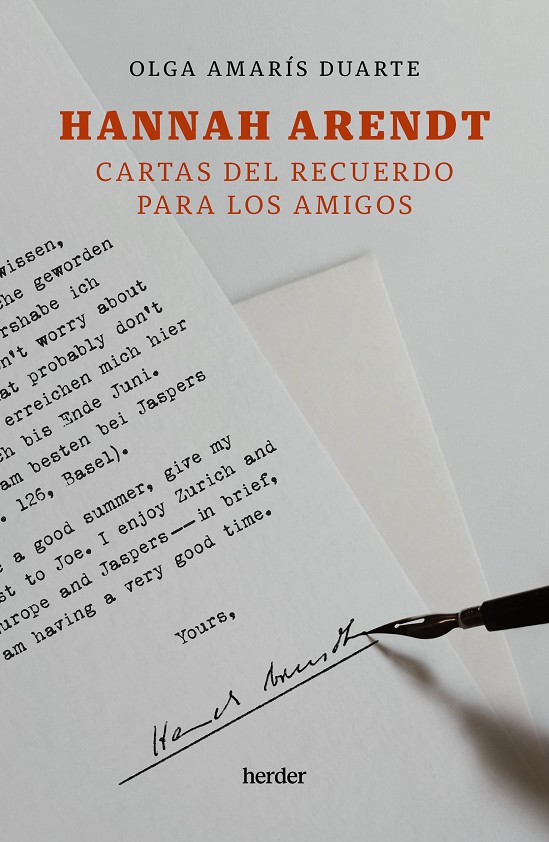 OLGA AMARÍS DUARTE
HANNAH ARENDT
CARTAS DEL RECUERDO
PARA LOS AMIGOS
wissen,
che geworden
rshabe ich
n't worry about
at probably don't
erreichen mich hier
ch bis Ende Juni.
am besten bei Jaspers
. 126, Basel).
e a good summer, give my
st to Joe. I enjoy Zurich and
urope and Jaspers--in brief,
am having a very good time.
Yours,
Hannah Arendt
herder